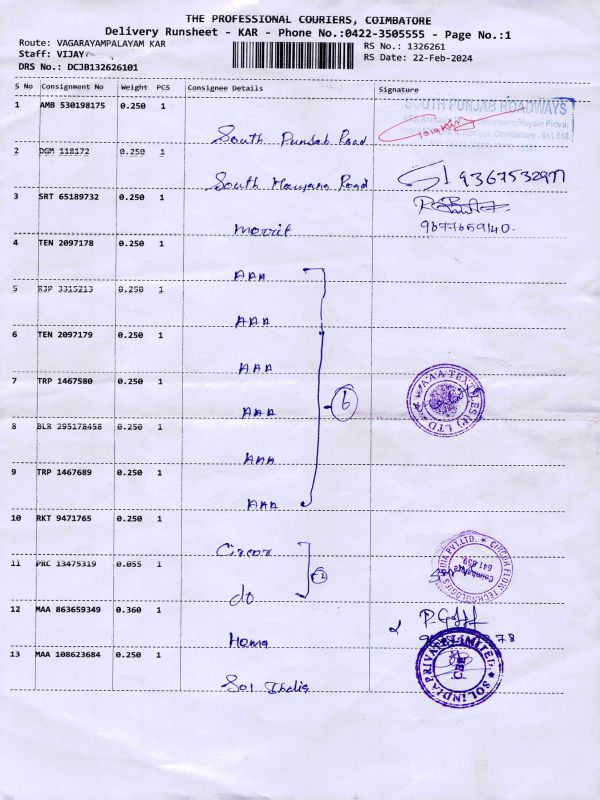 THE PROFESSIONAL COURIERS, COIMBATORE
Delivery Runsheet - KAR - Phone No.:0422-3505555 - Page No.:1
Route: VAGARAYAMPALAYAM KAR
RS No.: 1326261
Staff: VIJAY
RS Date: 22-Feb-2024
DRS No.: DCJB132626101
S No Consignment No Weight PCS Consignee Details Signature
1 AMB 530198175 0.250 1
SOUTH PUNJAB ROADWAYS
South Punjab Road
2 DGM 118172 0.250 1
South Haryana Road
9367532977
3 SRT 65189732 0.250 1
Morrit
9677659140.
4 TEN 2097178 0.250 1
AAA
5 RJP 3315213 0.250 1
AAA
6 TEN 2097179 0.250 1
AAA
7 TRP 1467580 0.250 1
AAA
6
8 BLR 295178458 0.250 1
AAA
9 TRP 1467689 0.250 1
AAA
10 RKT 9471765 0.250 1
Circor
CIRCOR FLOW TECHNOLOGIES INDIA PVT.LTD.
Coimbatore
641 659
11 PRC 13475319 0.055 1
do
2
12 MAA 863659349 0.360 1
Hema
13 MAA 108623684 0.250 1
SOL INDIA PRIVATE LIMITED
Sol India